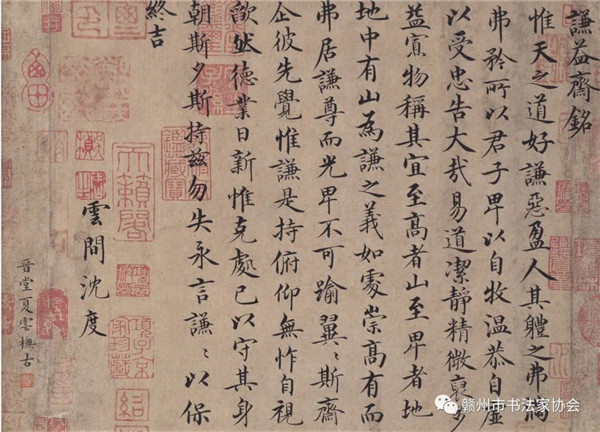 謙益齋銘
惟天之道好謙惡盈人其體之弗滿
弗矜所以君子卑以自牧溫恭自虛
以受忠告大哉易道潔靜精微裒多
益寡物稱其宜至高者山至卑者地
地中有山為謙之義如處崇高有而
弗居謙尊而光卑不可踰翼〻斯齋
企彼先覺惟謙是持俯仰無怍自視
欿然德業日新惟克處己以守其身
朝斯夕斯持茲勿失永言謙〻以保
終吉
天籟閣
雲間沈度
項子京家珍藏
晉堂夏雲橅古
赣州市书法家协会